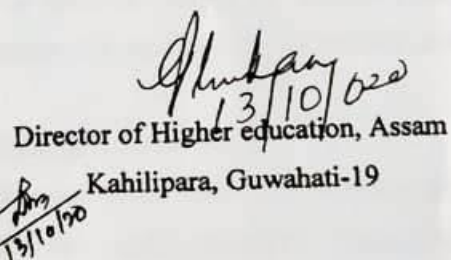 13/10/020
Director of Higher education, Assam
Kahilipara, Guwahati-19
13/10/20